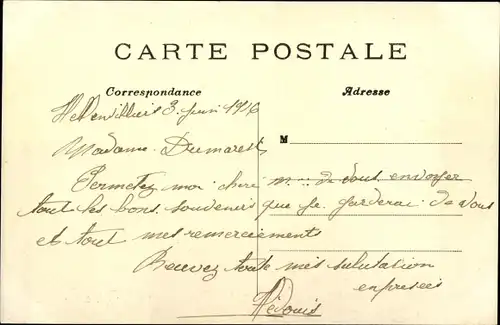 CARTE POSTALE
Correspondance
Adresse
3 Juin 1916
M
Madame Dumarest
Permetez moi cheré M.... de vous envoyer
tout les bons souvenirs que je garderai de vous
et tout mes remerciements
Recevez toute mes salutation
enpresées
Hédouis